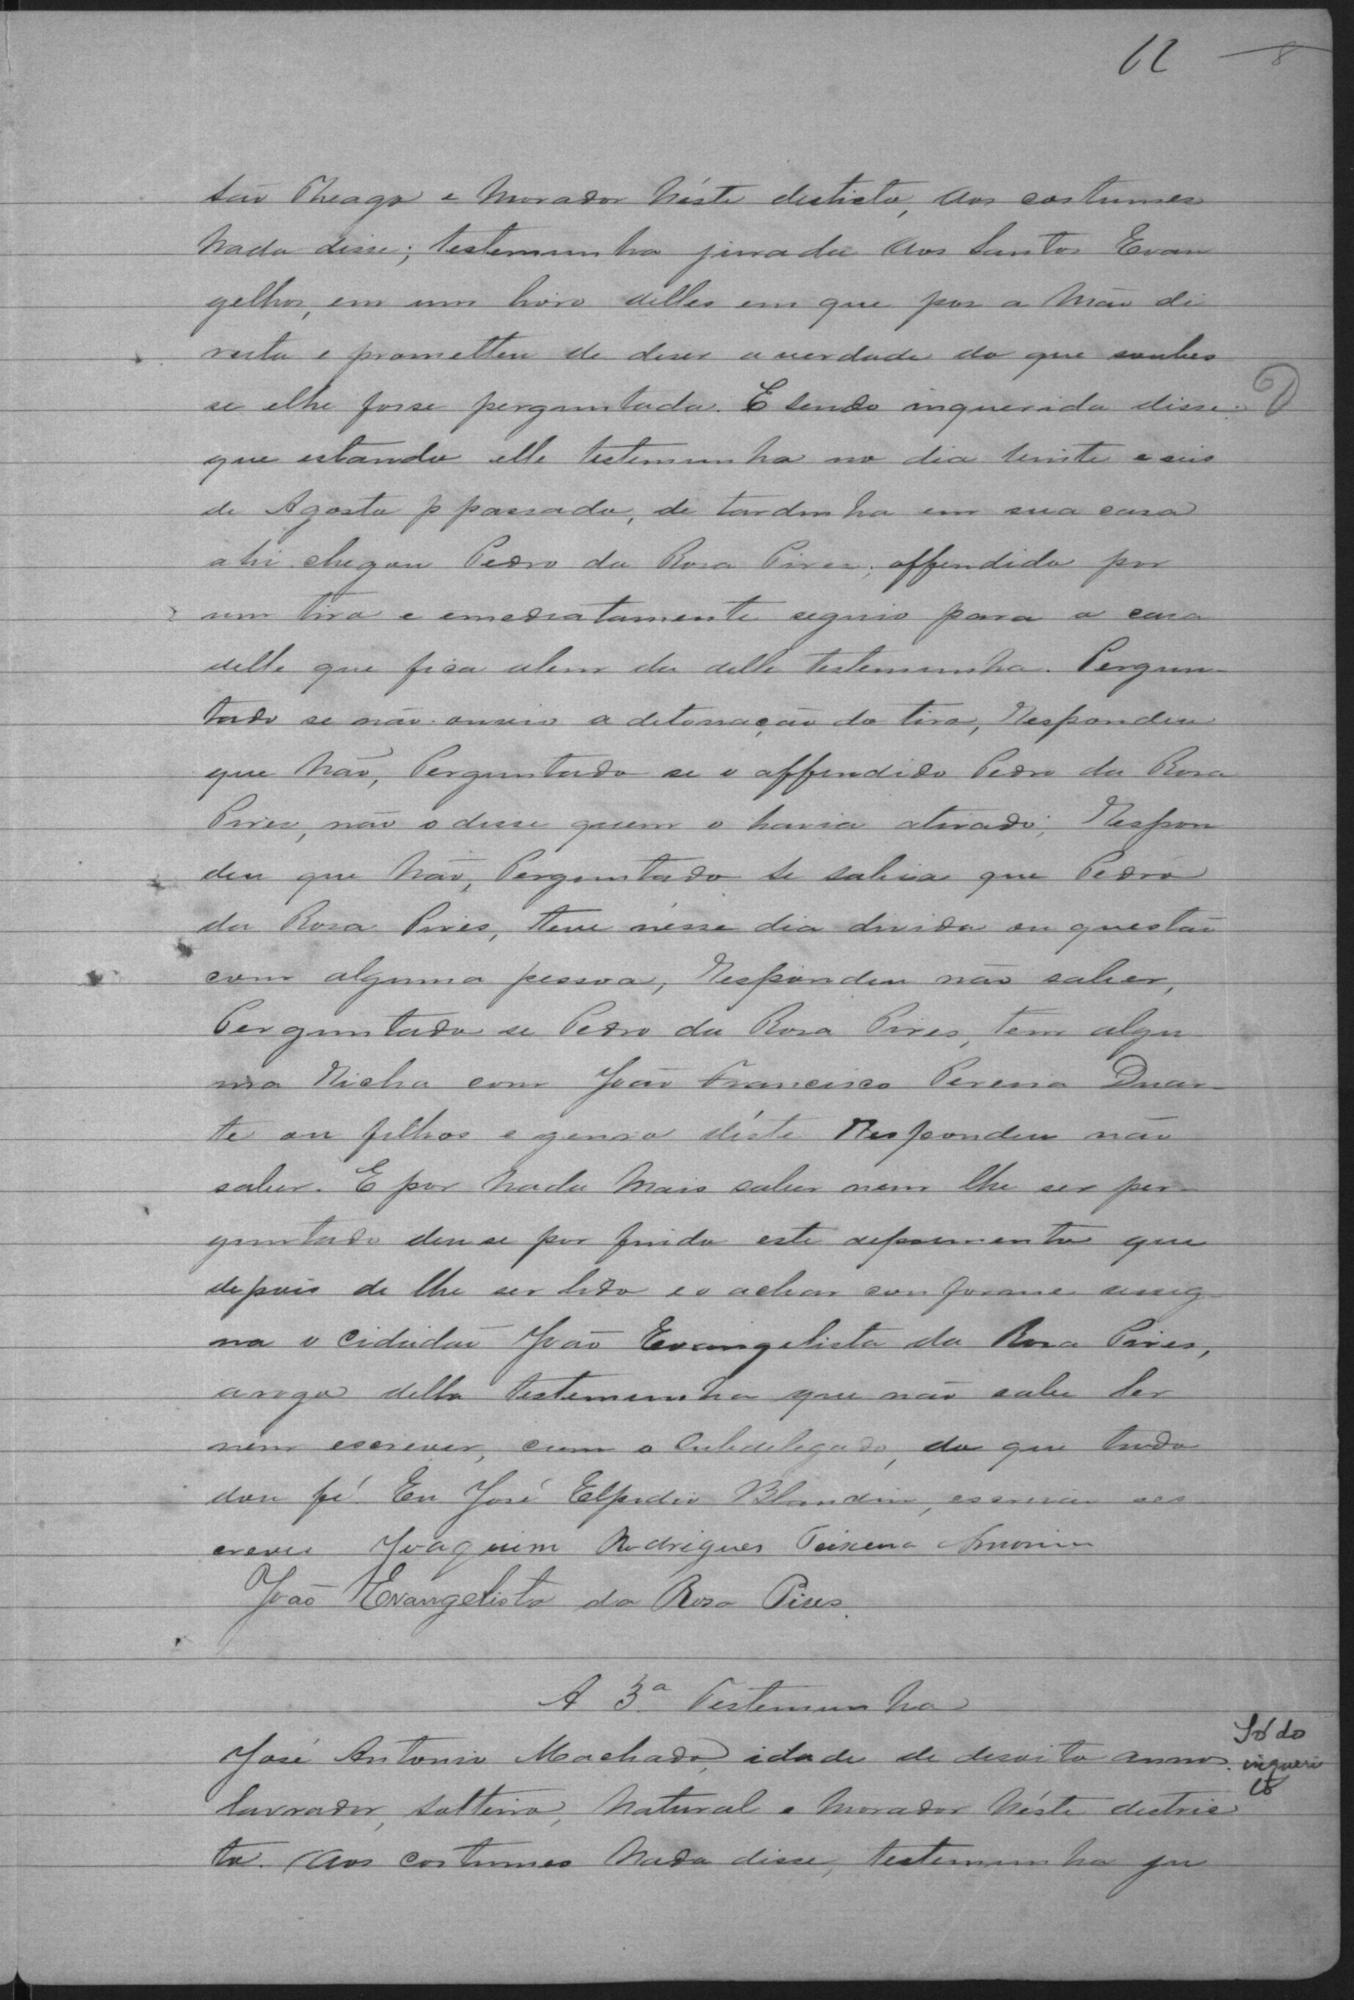 12 8
são Theago e morador néste destricto, aos costumes
nada disse; testemunha jurada aos Santos Evan
gelhos, em um livro delles em que pos a mão di
reita e prometteu de diser a verdade do que soubes
se elhe fosse perguntada. E sendo inquerida disse:
que estando elle testemunha no dia vinte e seis
de Agosto p passado, de tardinha em sua casa
ahi chegou Pedro da Rosa Pires, offendido por
um tiro e emediatamente seguio para a casa
delle que fica alem da delle testemunha. Pergun-
tado se não ouvio a detonação do tiro, Respondeu
que não, Perguntado se o offendido Pedro da Rosa
Pires, não o disse quem o havia atirado; Respon
deu que não, Perguntado se sabia que Pedro
da Rosa Pires, teve nésse dia duvida ou questão
com alguma pessoa, Respondeu não saber,
Perguntado se Pedro da Rosa Pires, tem algu
ma Richa com João Francisco Pereira Duar-
te ou filhos e genro déste Respondeu não
saber. E por nada mais saber nem lhe ser per-
guntado deu se por findo este depoimento que
depois de lhe ser lido e o achar conforme assig-
na o cidadão João Evangelista da Rosa Pires,
a rogo della testemunha que não sabe ler
nem escrever, com o Subdelegado, do que tudo
dou fé. Eu José Elpidio Blandin, escrivão es-
crevi Joaquim Rodrigues Teixeira Amorim
João Evangelista da Rosa Pires.
A 3ª Testemunha
José Antonio Machado, idade de desoito annos.
lavrador, solteiro, natural e morador néste destric
to. Aos costumes nada disse, testemunha ju
Só do
inqueri
to